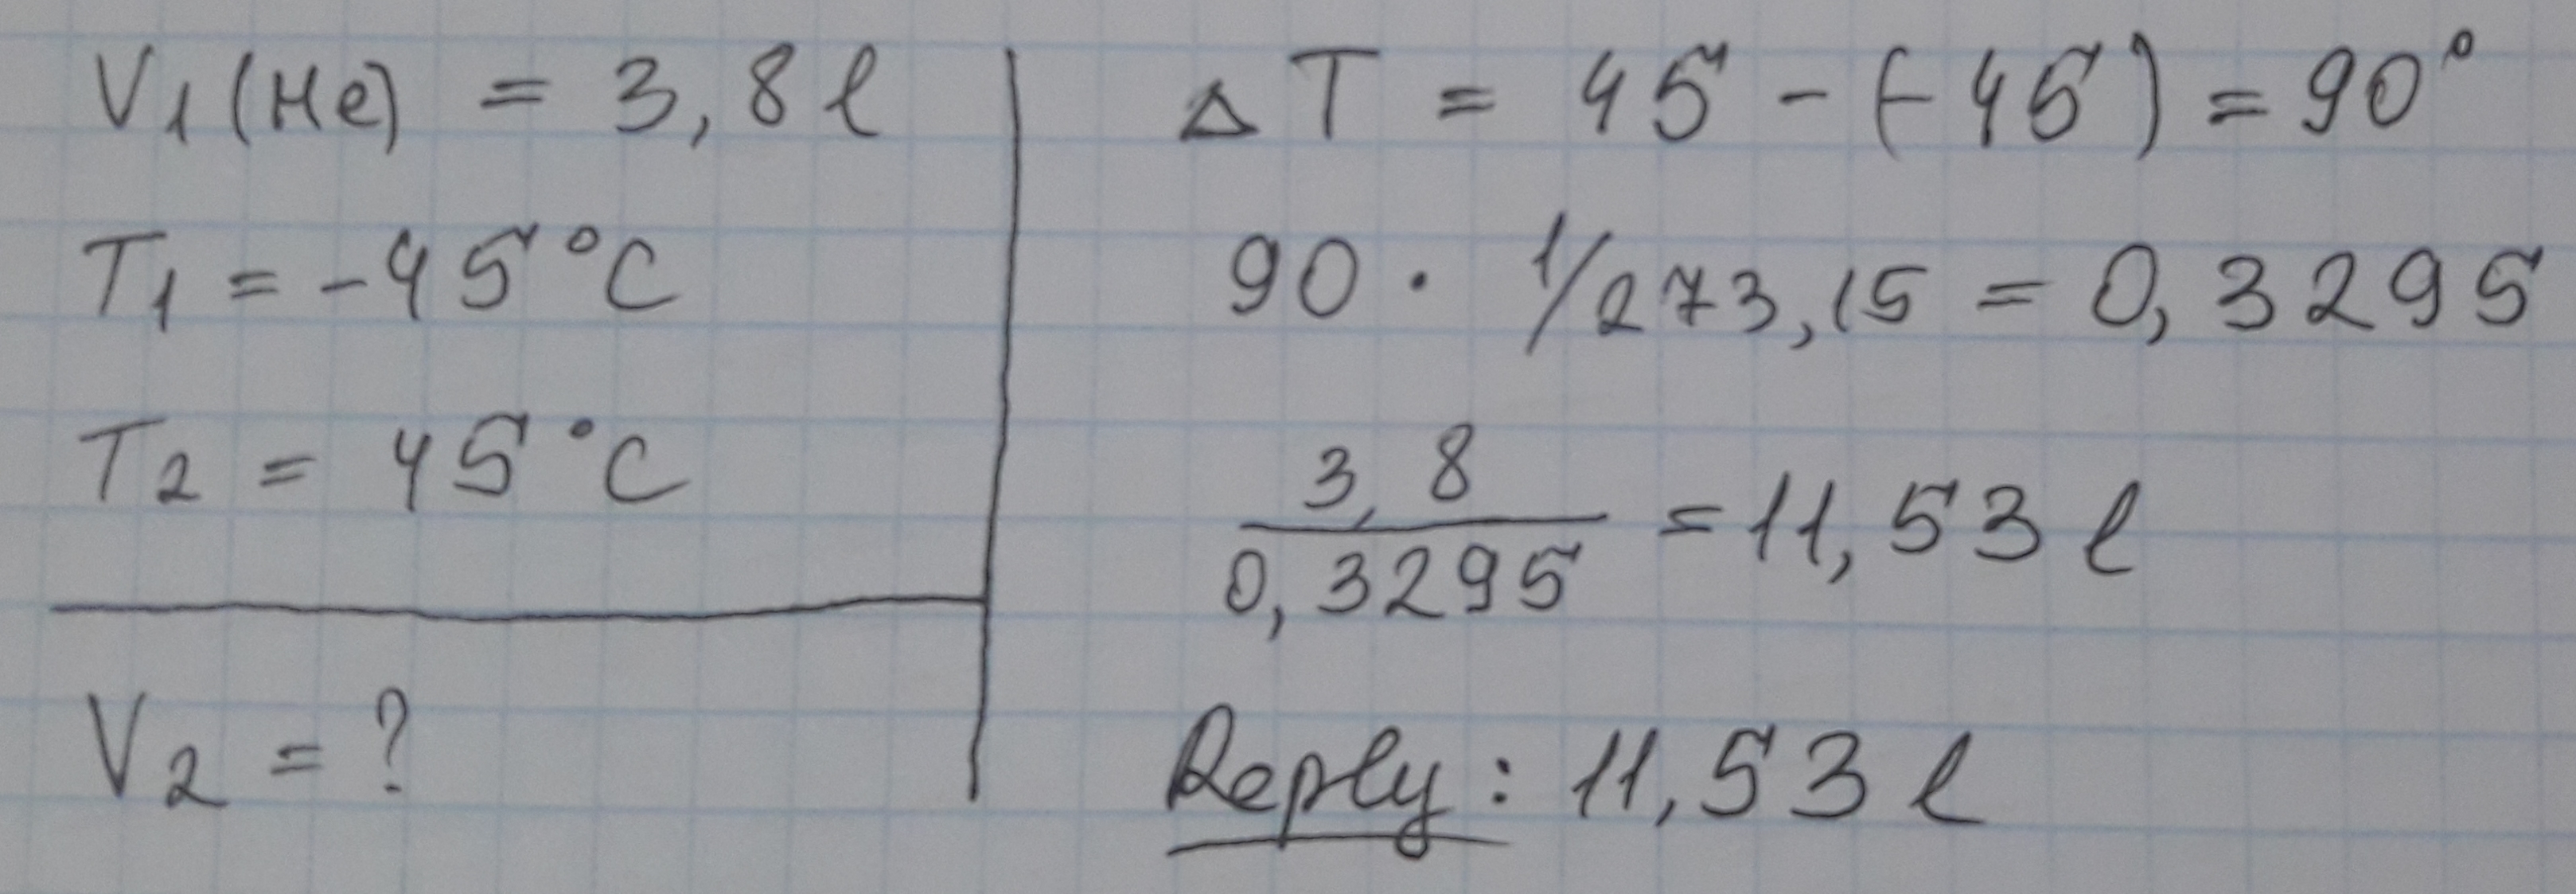 V1(He) = 3,8 l
T1 = -45°C
T2 = 45°C
V2 = ?
ΔT = 45 - (-45) = 90°
90 · 1/273,15 = 0,3295
3,8
0,3295 = 11,53 l
Reply: 11,53 l